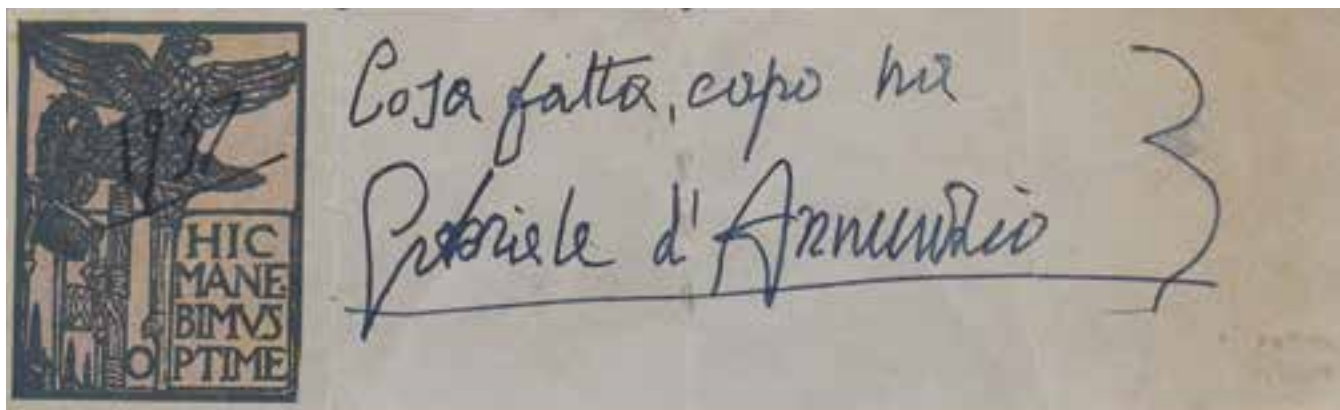 HIC
MANE
BIMVS
OPTIME
Cosa fatta, capo ha
Gabriele d'Annunzio